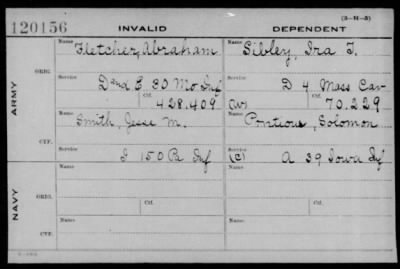 (3-H-3)
120156 INVALID DEPENDENT
Name Fletcher, Abraham Name Sibley, Ira T.
ARMY
ORIG.
Service Service
D and E 30 Mo Inf D 4 Mass Cav
Ctf. 428.409 (W) Ctf. 70.229
Name Smith, Jesse M. Name Pontious, Solomon
CTF.
Service Service
I 150 Pa Inf (C) A 39 Iowa Inf
NAVY
ORIG.
Name Name
Ctf. Ctf.
CTF.
Name Name